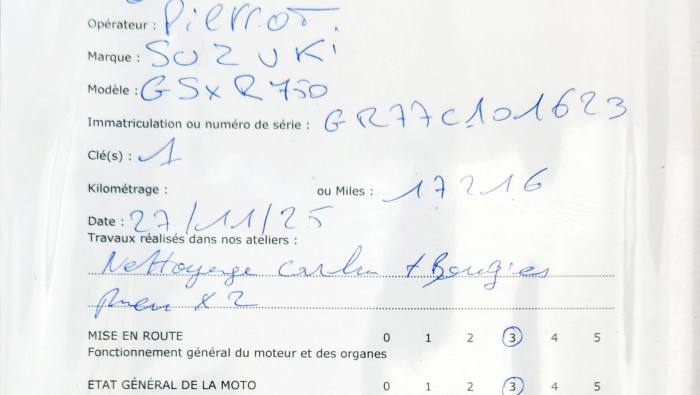 Opérateur : Pierrot
Marque : SUZUKI
Modèle : GSXR750
Immatriculation ou numéro de série : GR77C101623
Clé(s) : 1
Kilométrage : ou Miles : 17216
Date : 27/11/25
Travaux réalisés dans nos ateliers :
Nettoyage carbu + Bougies
pneu x2
MISE EN ROUTE 0 1 2 3 4 5
Fonctionnement général du moteur et des organes
ETAT GÉNÉRAL DE LA MOTO 0 1 2 3 4 5